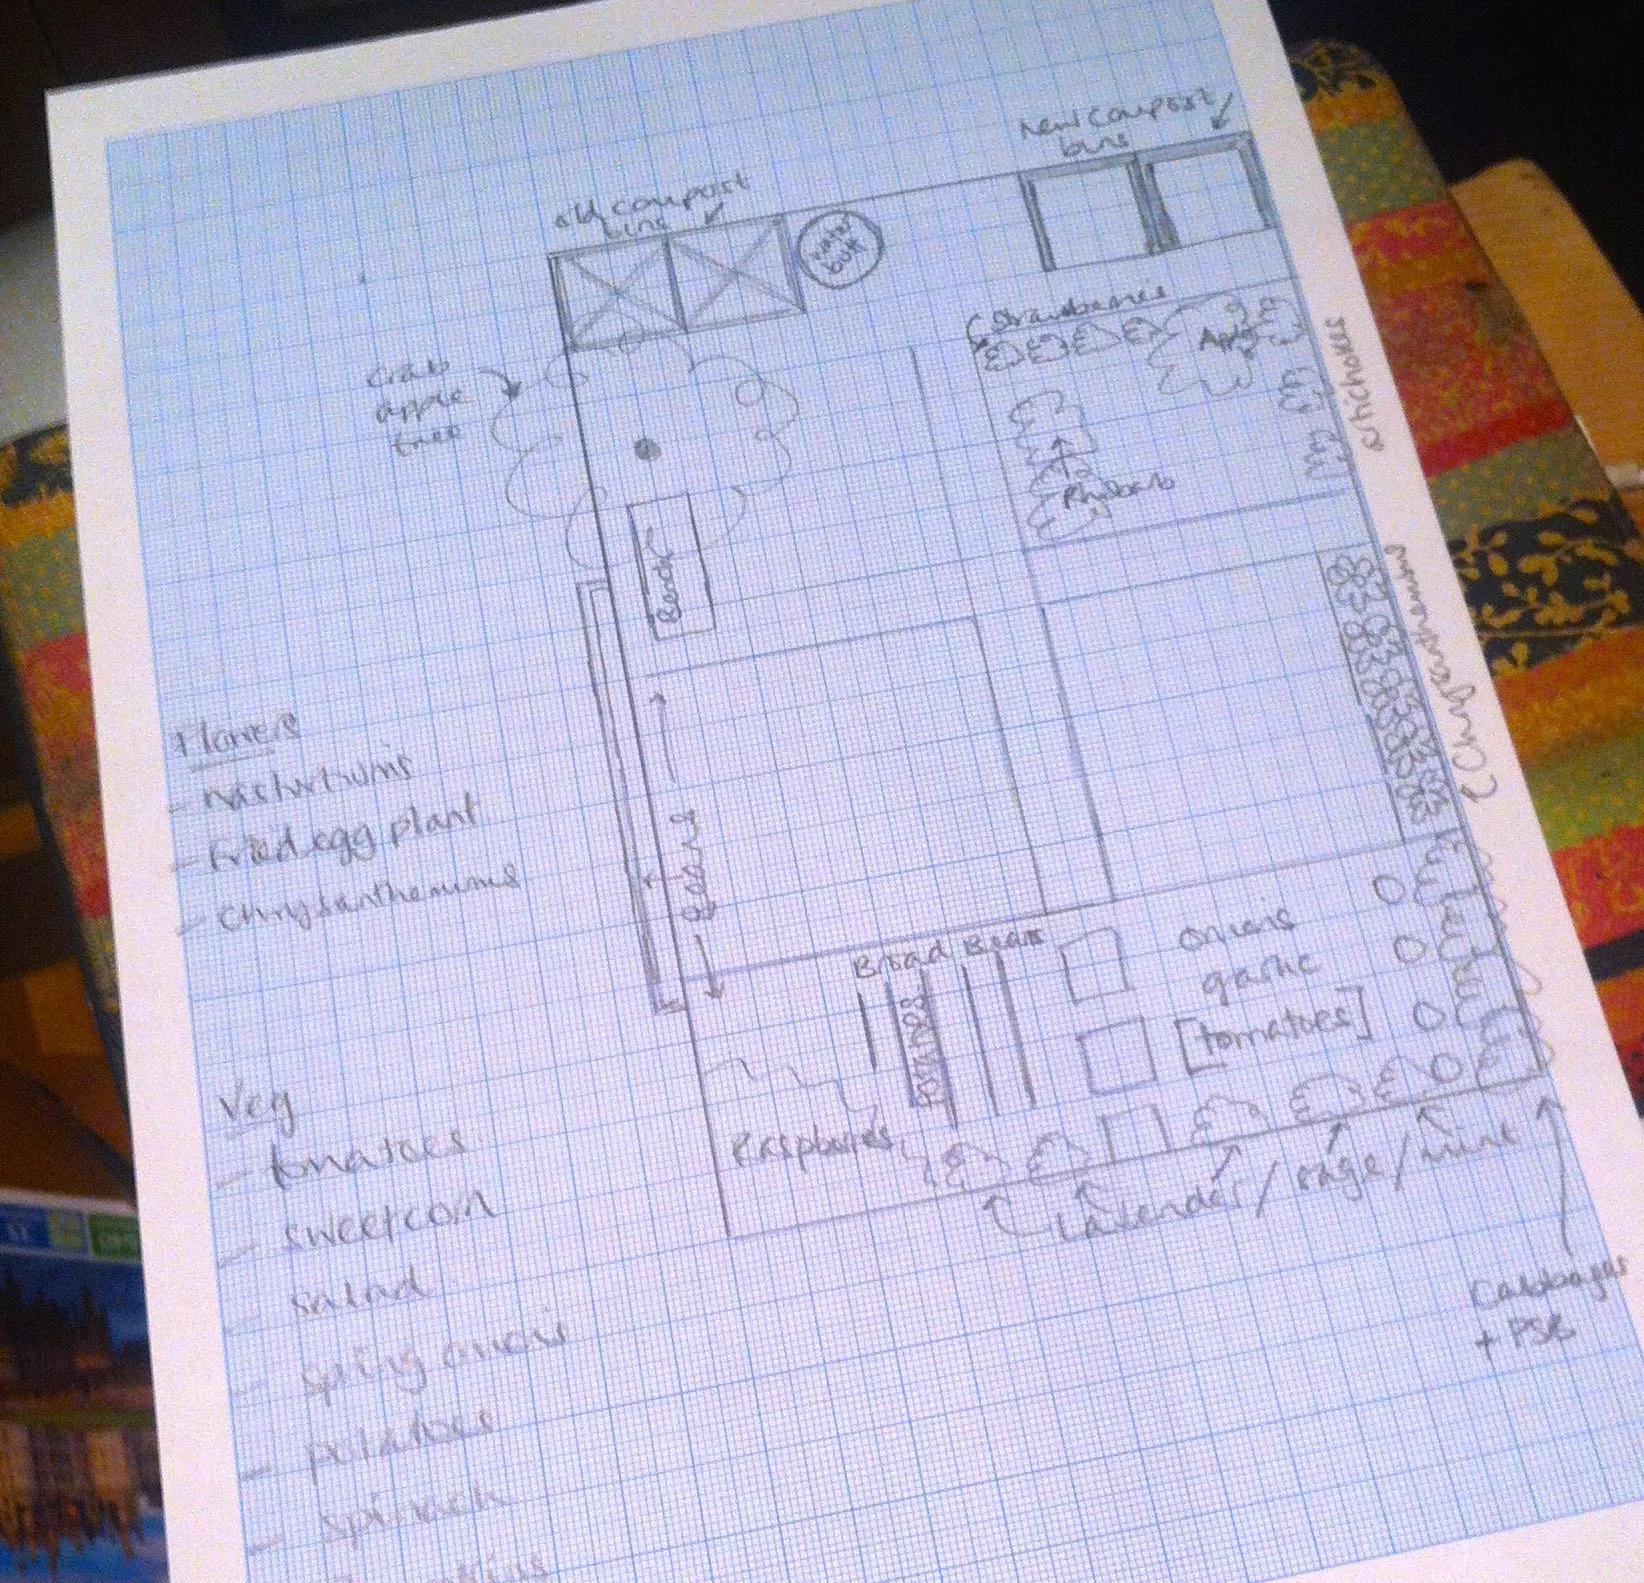 new compost
bins
old compost
bins
water
butt
Strawberries
Apple
crab
apple
tree
Rhubarb
Bench
Chrysanthemums
Flowers
- nasturtiums
- Fried egg plant
- Chrysanthemums
Beans
Broad Beans
onions
garlic
[tomatoes]
potatoes
Raspberries
Lavender / sage / mint
Cabbages
+ PSB
Veg
- tomatoes
- sweetcorn
- salad
- spring onions
- potatoes
- spinach